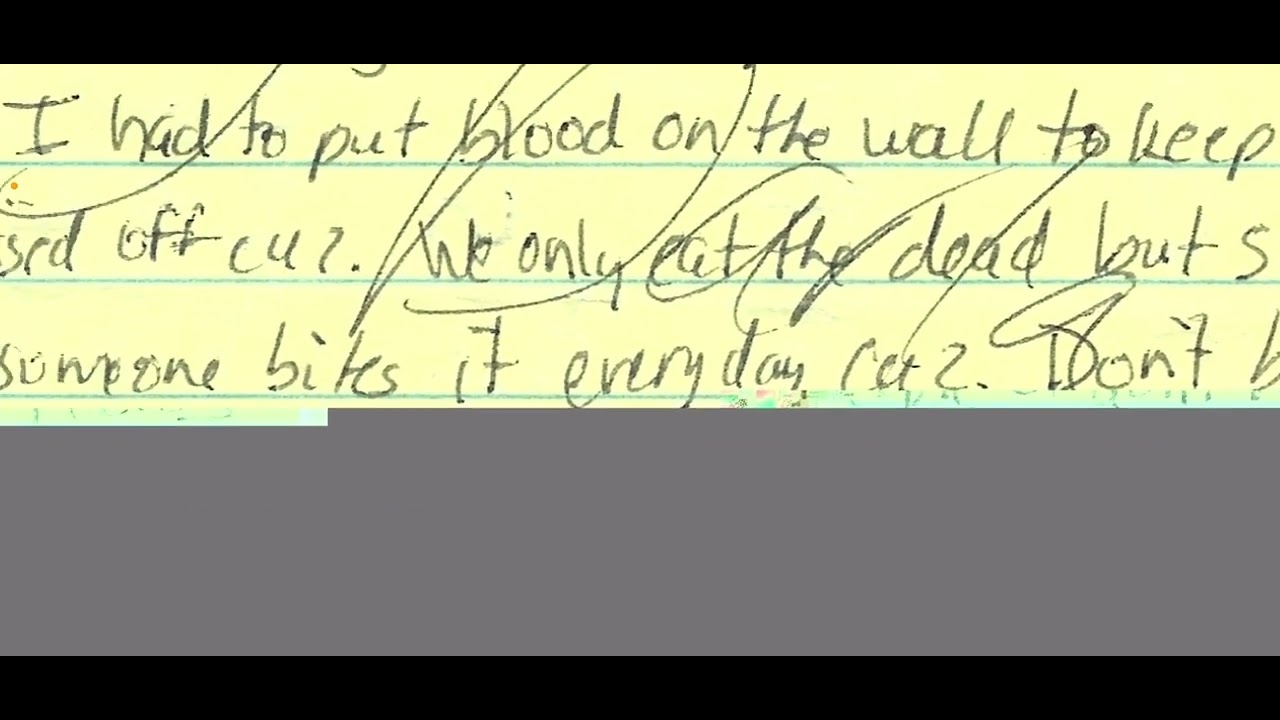 I had to put blood on the wall to keep
sed off cuz. We only eat the dead but s
someone bites it everyday cuz. Don't b